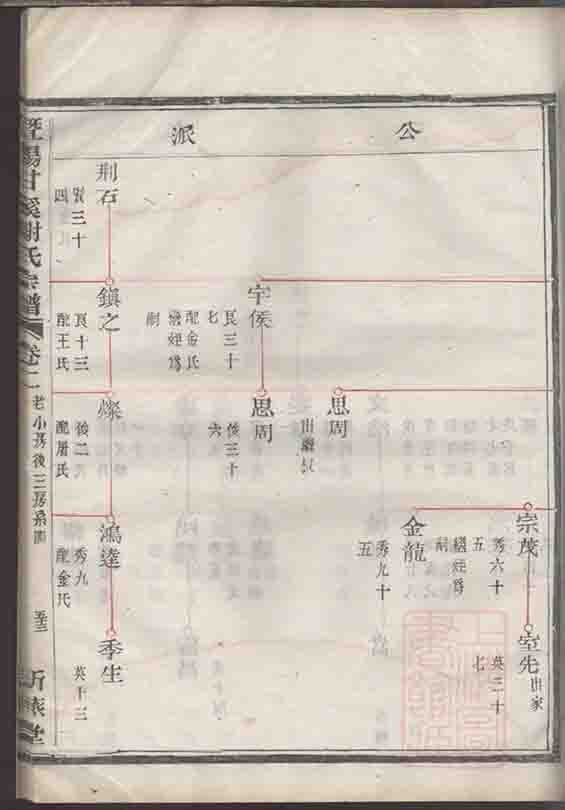 公派
宗茂
秀六十五
繼姪爲嗣
室先
出家
英二十七
金龍
秀九十五
思周
出繼
宇侯
艮三十七
配金氏
繼姪爲嗣
思周
俊三十六
荆石
賢三十四
鎭之
艮十三
配王氏
燦
俊二
配屠氏
鴻逵
秀九
配金氏
季生
英十三
暨陽甘溪謝氏宗譜
卷二
老小房後三房系圖